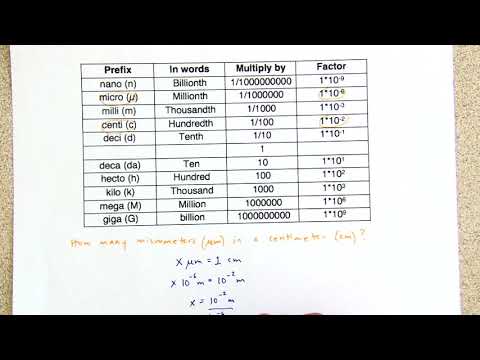 Prefix In words Multiply by Factor
nano (n) Billionth 1/1000000000 1*10⁻⁹
micro (μ) Millionth 1/1000000 1*10⁻⁶
milli (m) Thousandth 1/1000 1*10⁻³
centi (c) Hundredth 1/100 1*10⁻²
deci (d) Tenth 1/10 1*10⁻¹
1
deca (da) Ten 10 1*10¹
hecto (h) Hundred 100 1*10²
kilo (k) Thousand 1000 1*10³
mega (M) Million 1000000 1*10⁶
giga (G) billion 1000000000 1*10⁹
How many micrometers (μm) in a centimeter (cm)?
x μm = 1 cm
x 10⁻⁶ m = 10⁻² m
x = 10⁻² m